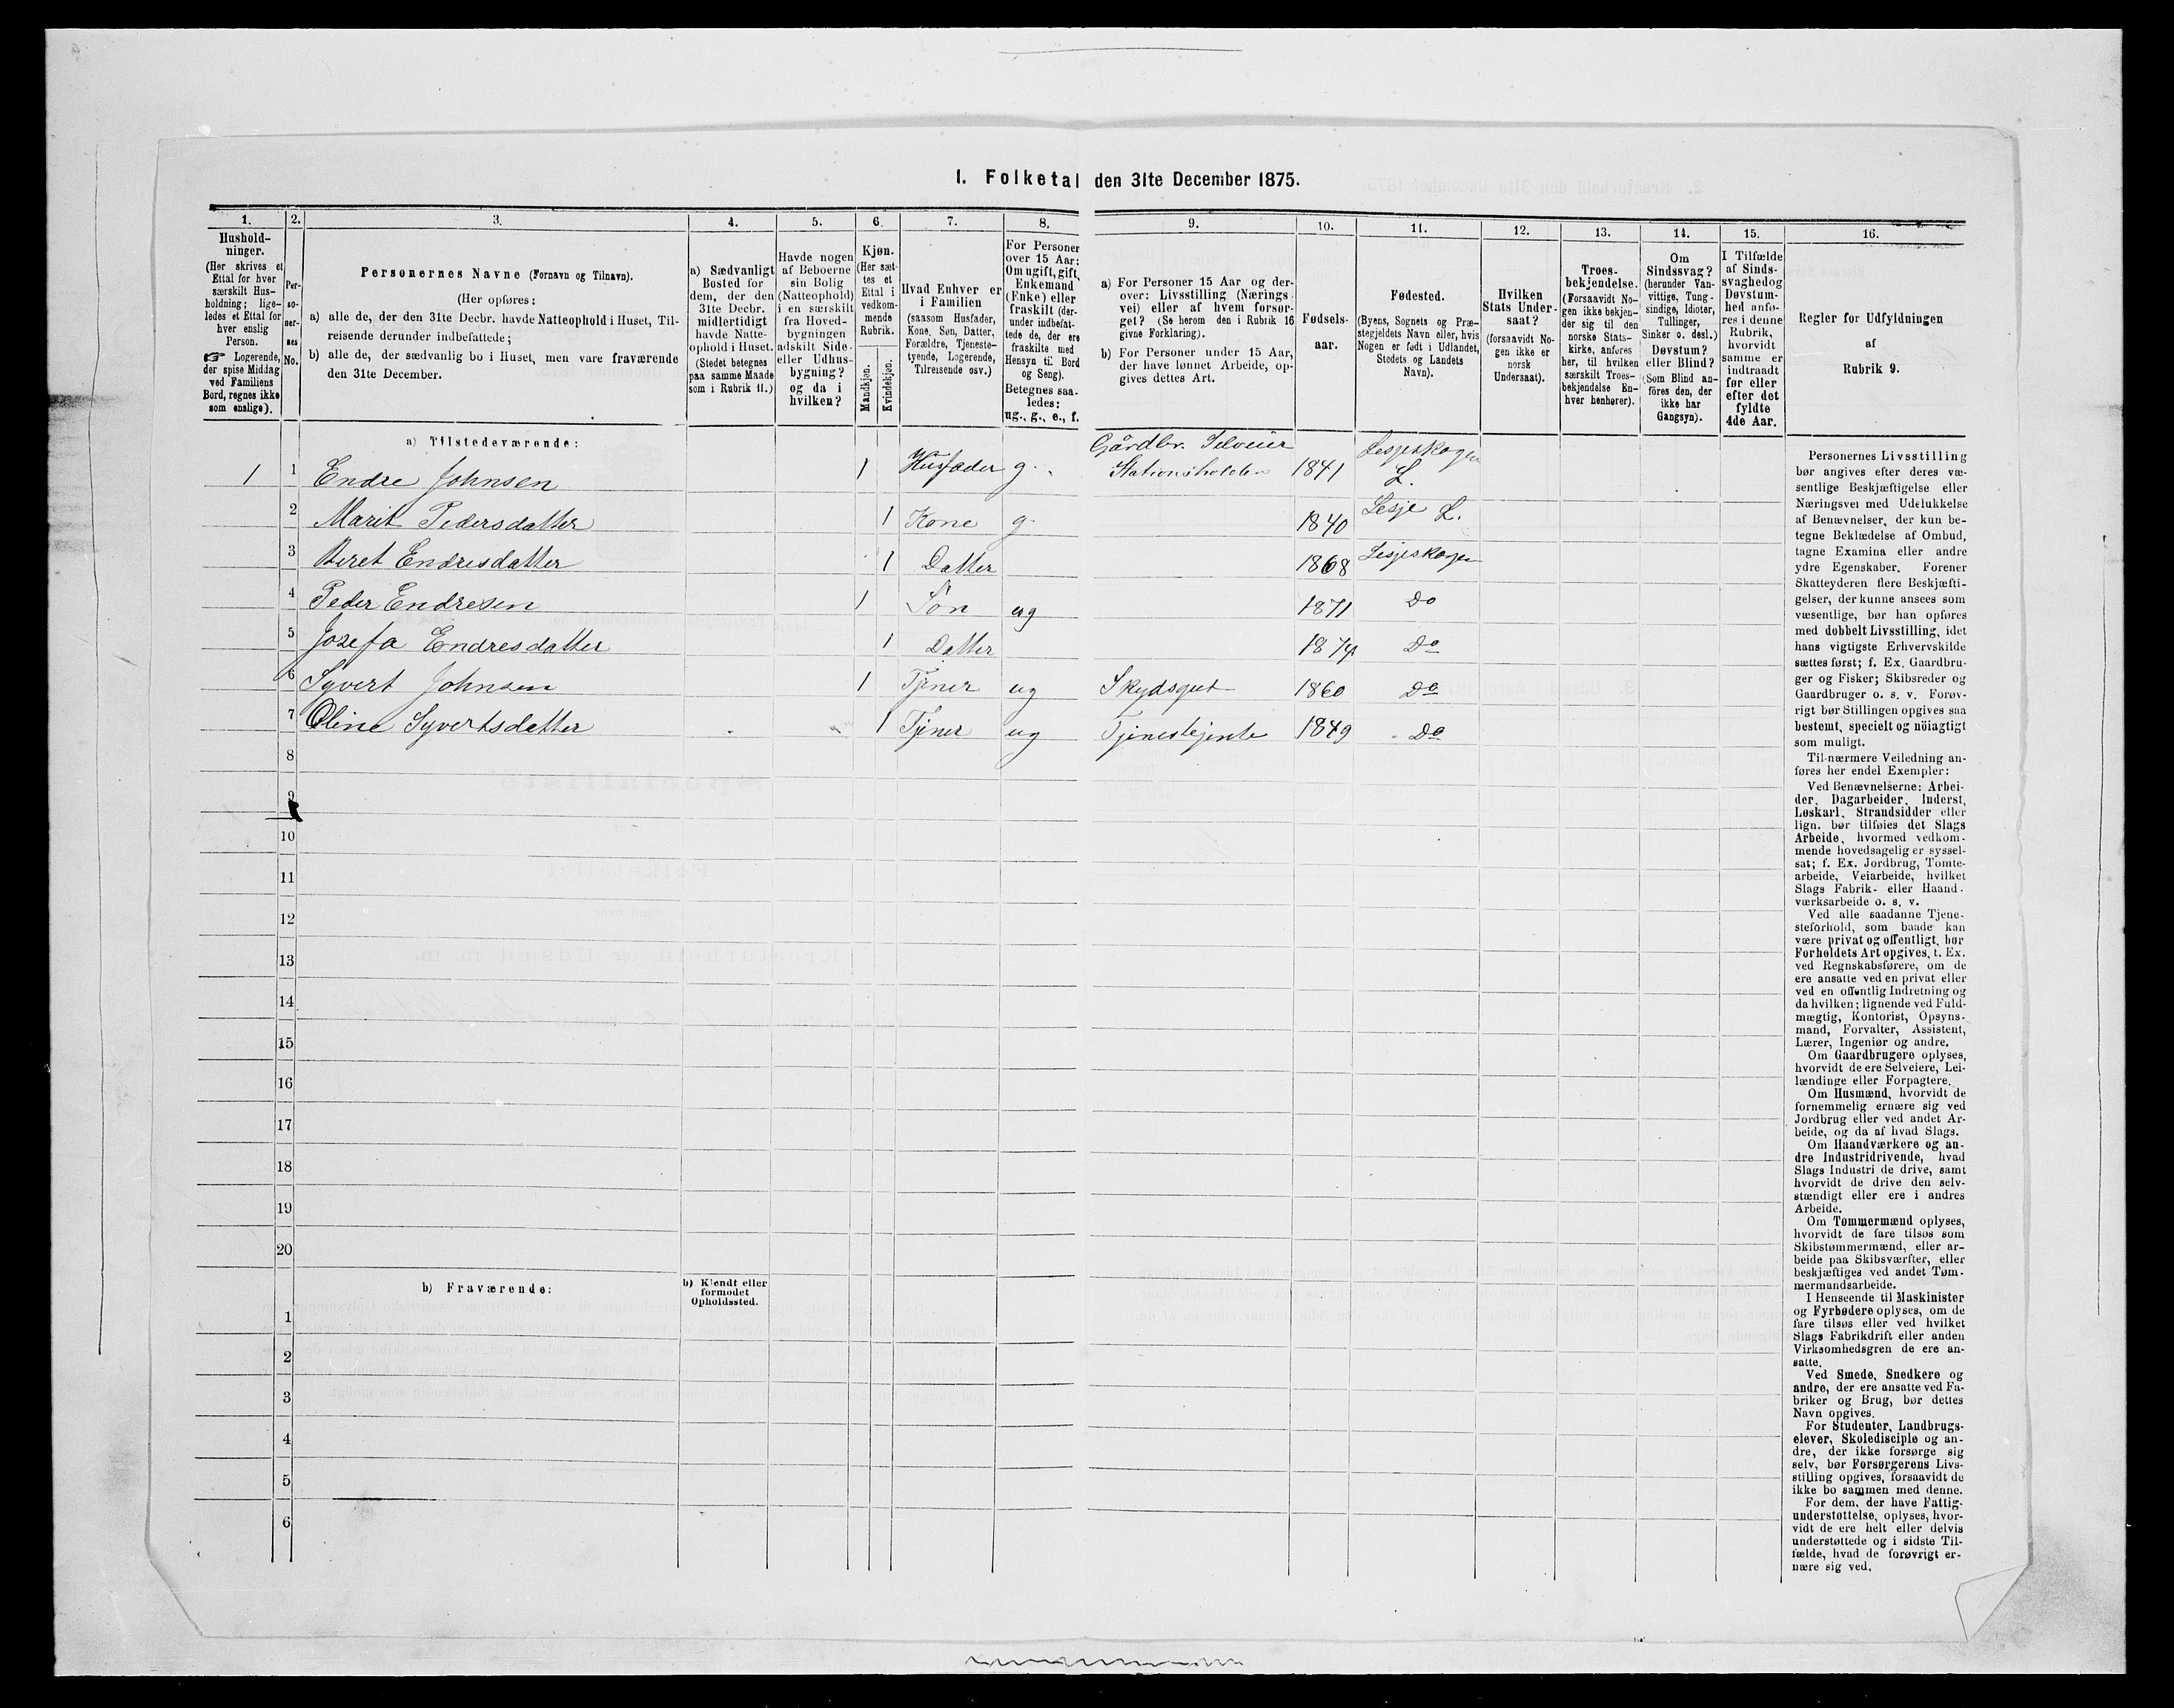 1. Folketal den 31te December 1875.
1. 2. 3. 4. 5. 6. 7. 8. 9. 10. 11. 12. 13. 14. 15. 16.
Hushold-
ninger.
(Her skrives et
Ettal for hver
særskilt Hus-
holdning; lige-
ledes et Ettal for
hver enslig
Person.
☞ Logerende,
der spise Middag
ved Familiens
Bord, regnes ikke
som enslige).
Per-
so-
ner-
nes
No.
Personernes Navne (Fornavn og Tilnavn).
(Her opføres:
a) alle de, der den 31te Decbr. havde Natteophold i Huset, Til-
reisende derunder indbefattede;
b) alle de, der sædvanlig bo i Huset, men vare fraværende
den 31te December.
a) Sædvanligt
Bosted for
dem, der den
31te Decbr.
midlertidigt
havde Natte-
ophold i Huset.
(Stedet betegnes
paa samme Maade
som i Rubrik 11.)
Havde nogen
af Beboerne
sin Bolig
(Natteophold)
i en særskilt
fra Hoved-
bygningen
adskilt Side-
eller Udhus-
bygning?
og da i
hvilken?
Kjøn.
(Her sæt-
tes et
Ettal i
vedkom-
mende
Rubrik.
Mandkjøn.
Kvindekjøn.
Hvad Enhver er
i Familien
(saasom Husfader,
Kone, Søn, Datter,
Forældre, Tjeneste-
tyende, Logerende,
Tilreisende osv.)
For Personer
over 15 Aar:
Om ugift, gift,
Enkemand
(Enke) eller
fraskilt (der-
under indbefat-
tede de, der ere
fraskilte med
Hensyn til Bord
og Seng).
Betegnes saa-
ledes:
ug., g., e., f.
a) For Personer 15 Aar og der-
over: Livsstilling (Nærings-
vei) eller af hvem forsør-
get? (Se herom den i Rubrik 16
givne Forklaring).
b) For Personer under 15 Aar,
der have lønnet Arbeide, op-
gives dettes Art.
Fødsels-
aar.
Fødested.
(Byens, Sognets og Præ-
stegjeldets Navn eller, hvis
Nogen er født i Udlandet,
Stedets og Landets
Navn).
Hvilken
Stats Under-
saat?
(forsaavidt No-
gen ikke er
norsk
Undersaat).
Troes-
bekjendelse.
(Forsaavidt No-
gen ikke bekjen-
der sig til den
norske Stats-
kirke, anføres
her, til hvilken
særskilt Troes-
bekjendelse En-
hver henhører).
Om
Sindssvag?
(herunder Van-
vittige, Tung-
sindige, Idioter,
Tullinger,
Sinker o. desl.)
Døvstum?
eller Blind?
(Som Blind an-
føres den, der
ikke har
Gangsyn).
I Tilfælde
af Sinds-
svaghedog
Døvstum-
hed anfø-
res i denne
Rubrik,
hvorvidt
samme er
indtraadt
før eller
efter det
fyldte
4de Aar.
Regler for Udfyldningen
af
Rubrik 9.
a) Tilstedeværende:
Gårdbr. Selveier
1 1 Endre Johnsen 1 Husfader g. Stationsholder 1841 Lesjeskogen L.
2 Marit Pedersdatter 1 Kone g. 1840 Lesje L.
3 Beret Endresdatter 1 Datter 1868 Lesjeskogen
4 Peder Endresen 1 Søn ug 1871 Do
5 Josefa Endresdatter 1 Datter 1874 Do
6 Syvert Johnsen 1 Tjener ug Skydsgut 1860 Do
7 Oline Syvertsdatter 1 Tjener ug Tjenestejente 1849 Do
8
9
10
11
12
13
14
15
16
17
18
19
20
b) Fraværende:
b) Kjendt eller
formodet
Opholdssted.
1
2
3
4
5
6
Personernes Livsstilling
bør angives efter deres væ-
sentlige Beskjæftigelse eller
Næringsvei med Udelukkelse
af Benævnelser, der kun be-
tegne Beklædelse af Ombud,
tagne Examina eller andre
ydre Egenskaber. Forener
Skatteyderen flere Beskjæfti-
gelser, der kunne ansees som
væsentlige, bør han opføres
med dobbelt Livsstilling, idet
hans vigtigste Erhvervskilde
sættes først; f. Ex. Gaardbru-
ger og Fisker; Skibsreder og
Gaardbruger o. s. v. Forøv-
rigt bør Stillingen opgives saa
bestemt, specielt og nöiagtigt
som muligt.
Til nærmere Veiledning an-
føres her endel Exempler:
Ved Benævnelserne: Arbei-
der, Dagarbeider, Inderst,
Løskarl, Strandsidder eller
lign. bør tilføies det Slags
Arbeide, hvormed vedkom-
mende hovedsagelig er syssel-
sat; f. Ex. Jordbrug, Tomte-
arbeide, Veiarbeide, hvilket
Slags Fabrik- eller Haand-
værksarbeide o. s. v.
Ved alle saadanne Tjene-
steforhold, som baade kan
være privat og offentligt, bør
Forholdets Art opgives, t. Ex.
ved Regnskabsførere, om de
ere ansatte ved en privat eller
ved en offentlig Indretning og
da hvilken; lignende ved Fuld-
mægtig, Kontorist, Opsyns-
mand, Forvalter, Assistent,
Lærer, Ingeniør og andre.
Om Gaardbrugere oplyses,
hvorvidt de ere Selveiere, Lei-
lændinge eller Forpagtere.
Om Husmænd, hvorvidt de
fornemmelig ernære sig ved
Jordbrug eller ved andet Ar-
beide, og da af hvad Slags.
Om Haandværkere og an-
dre Industridrivende, hvad
Slags Industri de drive, samt
hvorvidt de drive den selv-
stændigt eller ere i andres
Arbeide.
Om Tømmermænd oplyses,
hvorvidt de fare tilsøs som
Skibstømmermænd, eller ar-
beide paa Skibsværfter, eller
beskjæftiges ved andet Tøm-
mermandsarbeide.
I Henseende til Maskinister
og Fyrbødere oplyses, om de
fare tilsøs eller ved hvilket
Slags Fabrikdrift eller anden
Virksomhedsgren de ere an-
satte.
Ved Smede, Snedkere og
andre, der ere ansatte ved Fa-
briker og Brug, bør dettes
Navn opgives.
For Studenter, Landbrugs-
elever, Skoledisciple og an-
dre, der ikke forsørge sig
selv, bør Forsørgerens Livs-
stilling opgives, forsaavidt de
ikke bo sammen med denne.
For dem, der have Fattig-
understøttelse, oplyses, hvor-
vidt de ere helt eller delvis
understøttede og i sidste Til-
fælde, hvad de forøvrigt er-
nære sig ved.